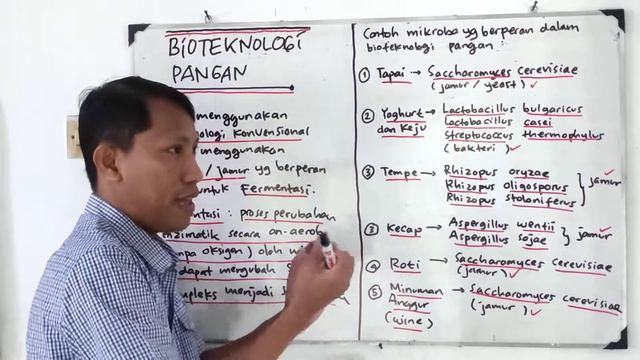 BIOTEKNOLOGI
PANGAN
menggunakan
ologi Konvensional
menggunakan
/ jamur yg berperan
untuk Fermentasi.
ntasi : proses perubahan
enzimatik secara an-aerob
npa oksigen) oleh
dapat mengubah
mpleks menjadi
Contoh mikroba yg berperan dalam
bioteknologi pangan :
① Tapai → Saccharomyces cerevisiae
(jamur / yeast)
② Yoghurt → Lactobacillus bulgaricus
dan Keju Lactobacillus casei
Streptococcus thermophylus
(bakteri)
③ Tempe → Rhizopus oryzae
Rhizopus oligosporus } jamur
Rhizopus stoloniferus
③ Kecap → Aspergillus wentii } jamur
Aspergillus sojae
④ Roti → Saccharomyces cerevisiae
(jamur)
⑤ Minuman → Saccharomyces cerevisiae
Anggur (jamur)
(wine)